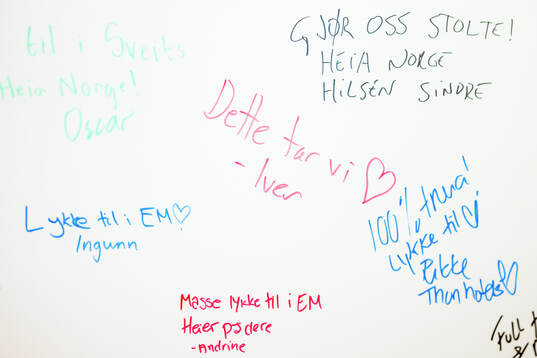 til i Sveits
Heia Norge!
Oscar
GJØR OSS STOLTE!
HEIA NORGE
HILSEN SINDRE
Dette tar vi ♡
- Iver
Lykke til i EM♡
Ingunn
100% trua!
Lykke til♡
Rikke
Masse lykke til i EM
Heier på dere
- Andrine
Full
&